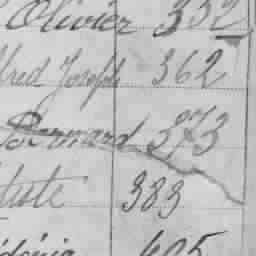 Olivier 332
lfred Joseph 362
Bernard 373
tiste 383
405